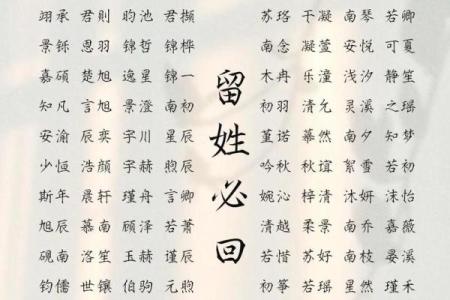 翊承 君则 昀池 君撷
景铄 思羽 锦哲 锦桦
嘉硕 楚旭 逸星 锦一
知凡 言旭 景澄 南初
安渝 辰奕 宇川 星辰
少恒 浩颜 宇赫 煦辰
斯年 晨轩 瑾舟 言卿
旭辰 慕南 顾泽 若萧
砚南 洛笙 玉赫 瑾辰
钧儒 世镶 伯驹 元煦
留姓必回
苏珞 千凝 南琴 若卿
南念 凝萱 安悦 可夏
木冉 乐潼 浅汐 静笙
初羽 清允 灵溪 之瑶
堇诺 蕚然 南夕 知梦
吟秋 秋谊 絮雪 若初
婉沁 梓清 沐妍 沫怡
清越 柔景 南乔 嘉薇
若惜 苏好 南枝 晏溪
初筝 若瑶 星然 瑾禾